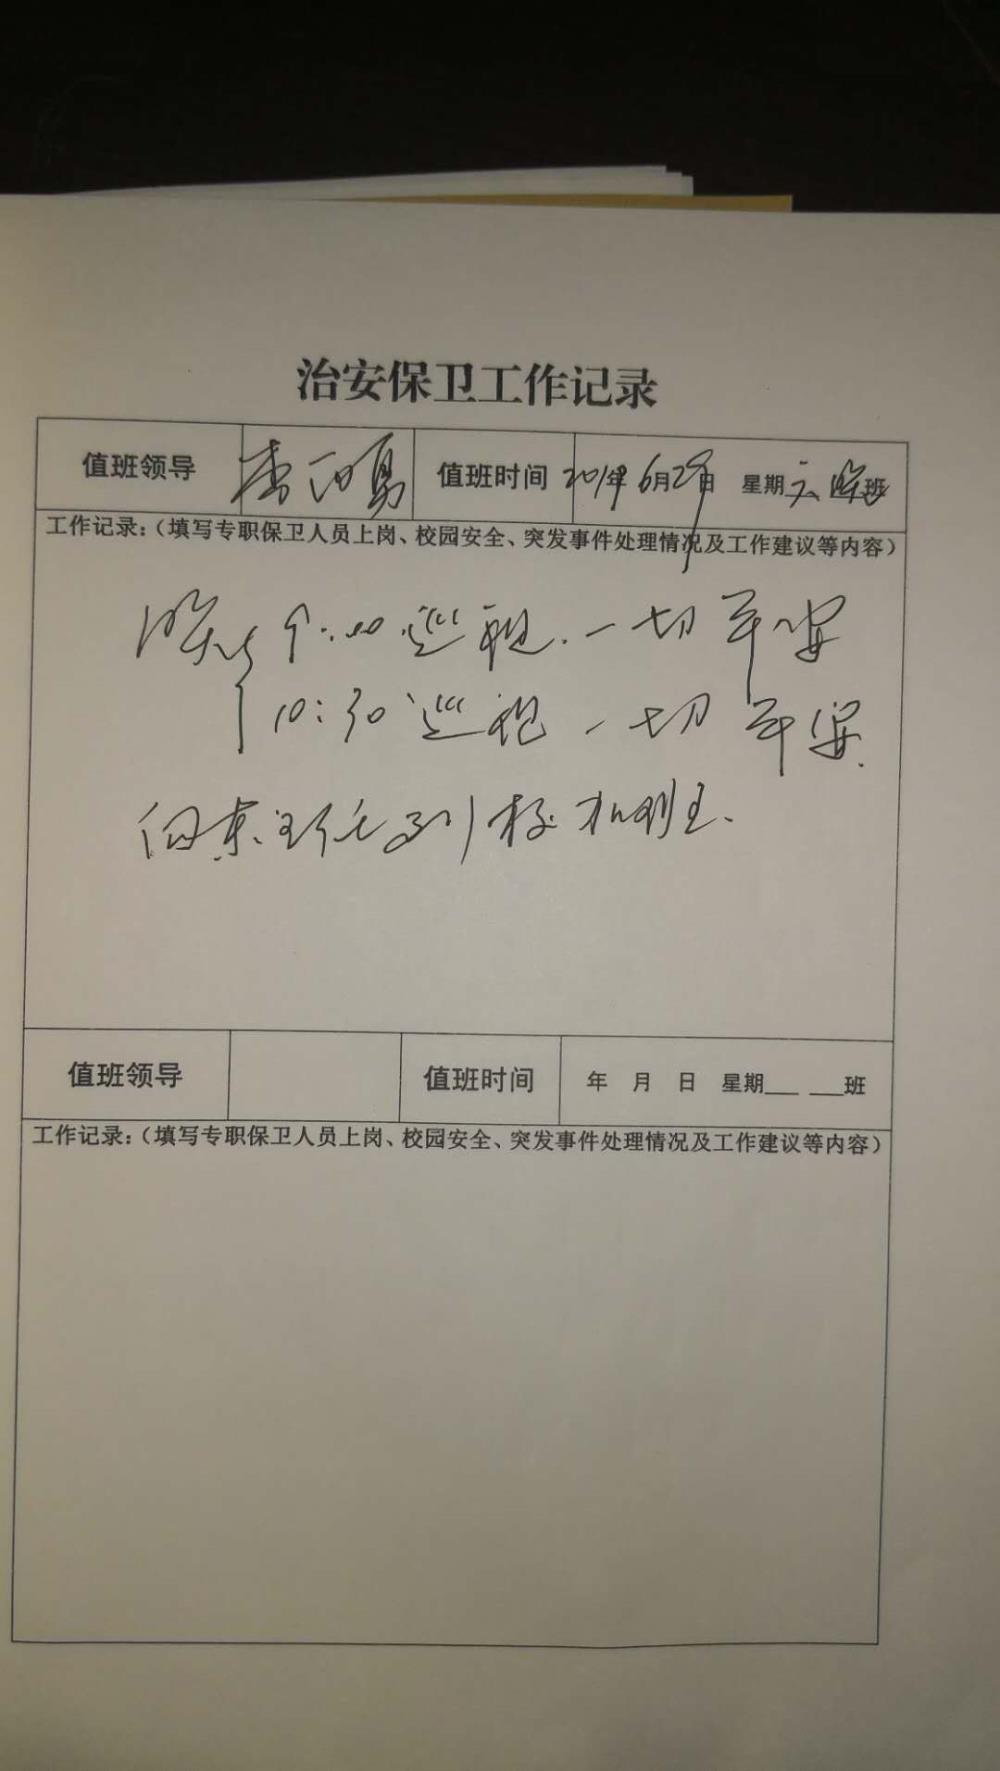 治安保卫工作记录
值班领导 李 勇 值班时间 201 年 6月29日 星期六 晚班
工作记录:(填写专职保卫人员上岗、校园安全、突发事件处理情况及工作建议等内容)
晚上9:00巡视.一切平安
10:30巡视 一切平安.
向东主任到校 班.
值班领导 值班时间 年 月 日 星期___ ___班
工作记录:(填写专职保卫人员上岗、校园安全、突发事件处理情况及工作建议等内容)